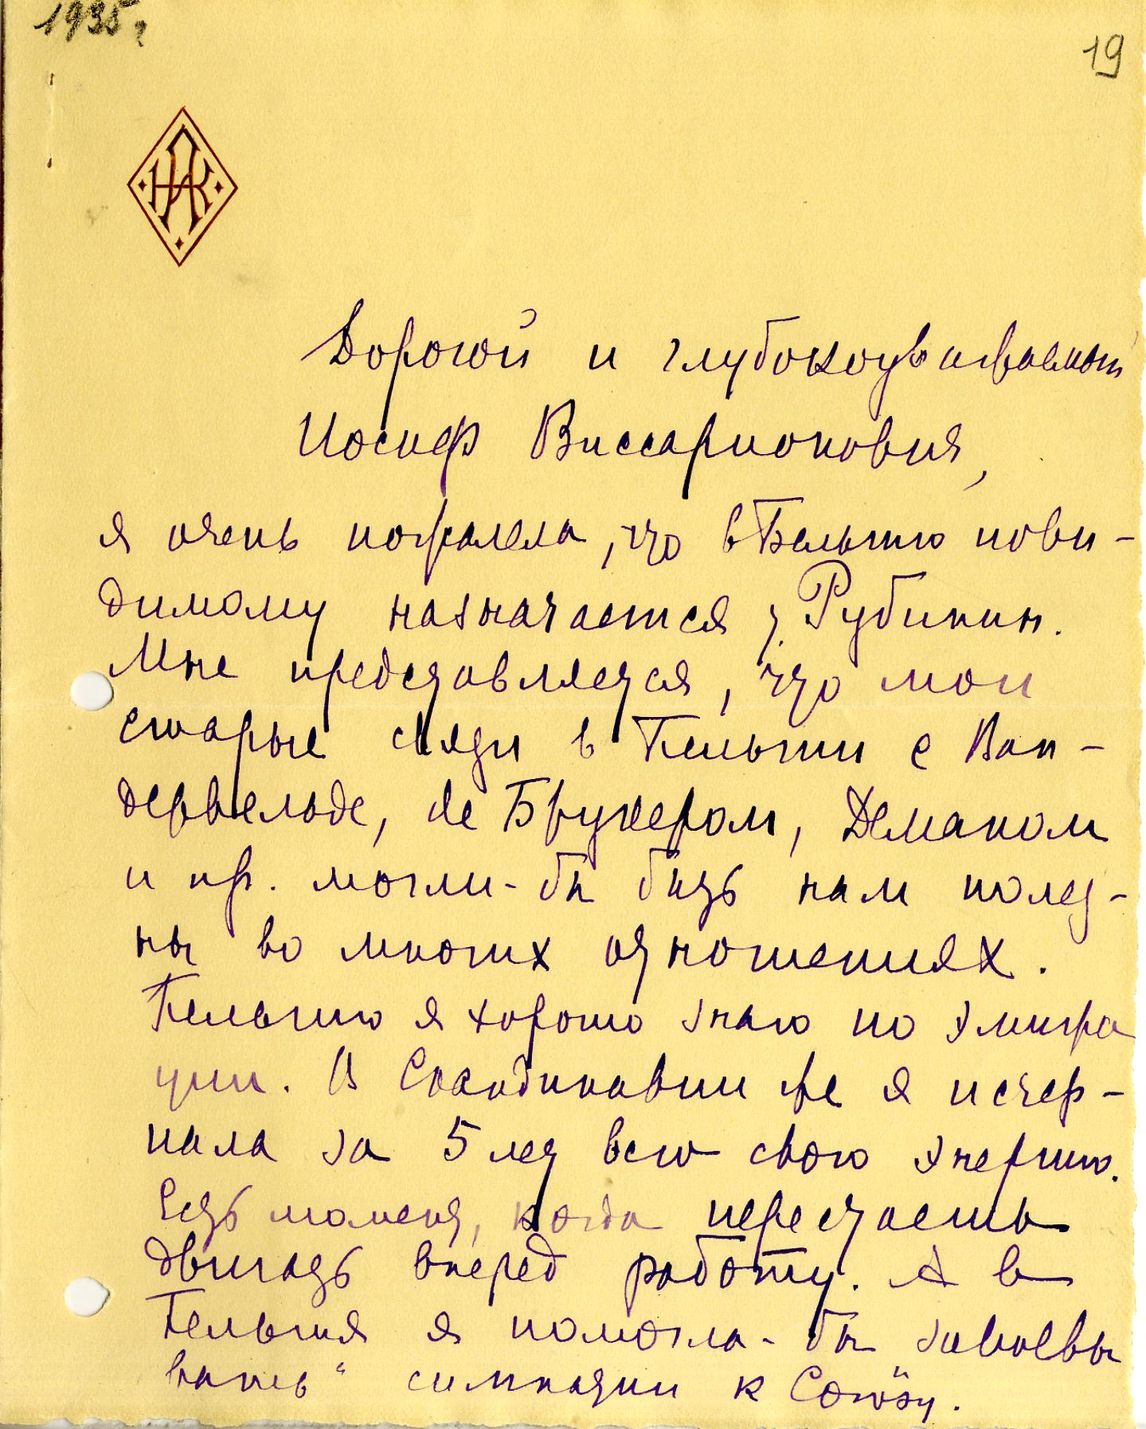 1935 г
19
НАК
Дорогой и глубокоуважаемый
Иосиф Виссарионович,
я очень пожалела, что в Бельгию пови-
димому назначается Рубинин.
Мне представляется, что мои
старые связи в Бельгии с Ван-
дервельде, де Брукером, Деманом
и пр. могли-бы быть нам полез-
ны во многих отношениях.
Бельгию я хорошо знаю по эмигра
ции. В Скандинавии же я исчер-
пала за 5 лет всю свою энергию.
Есть момент, когда перестаешь
двигать вперед работу. А в
Бельгии я помогла-бы завоевы
вать" симпатии к Союзу.